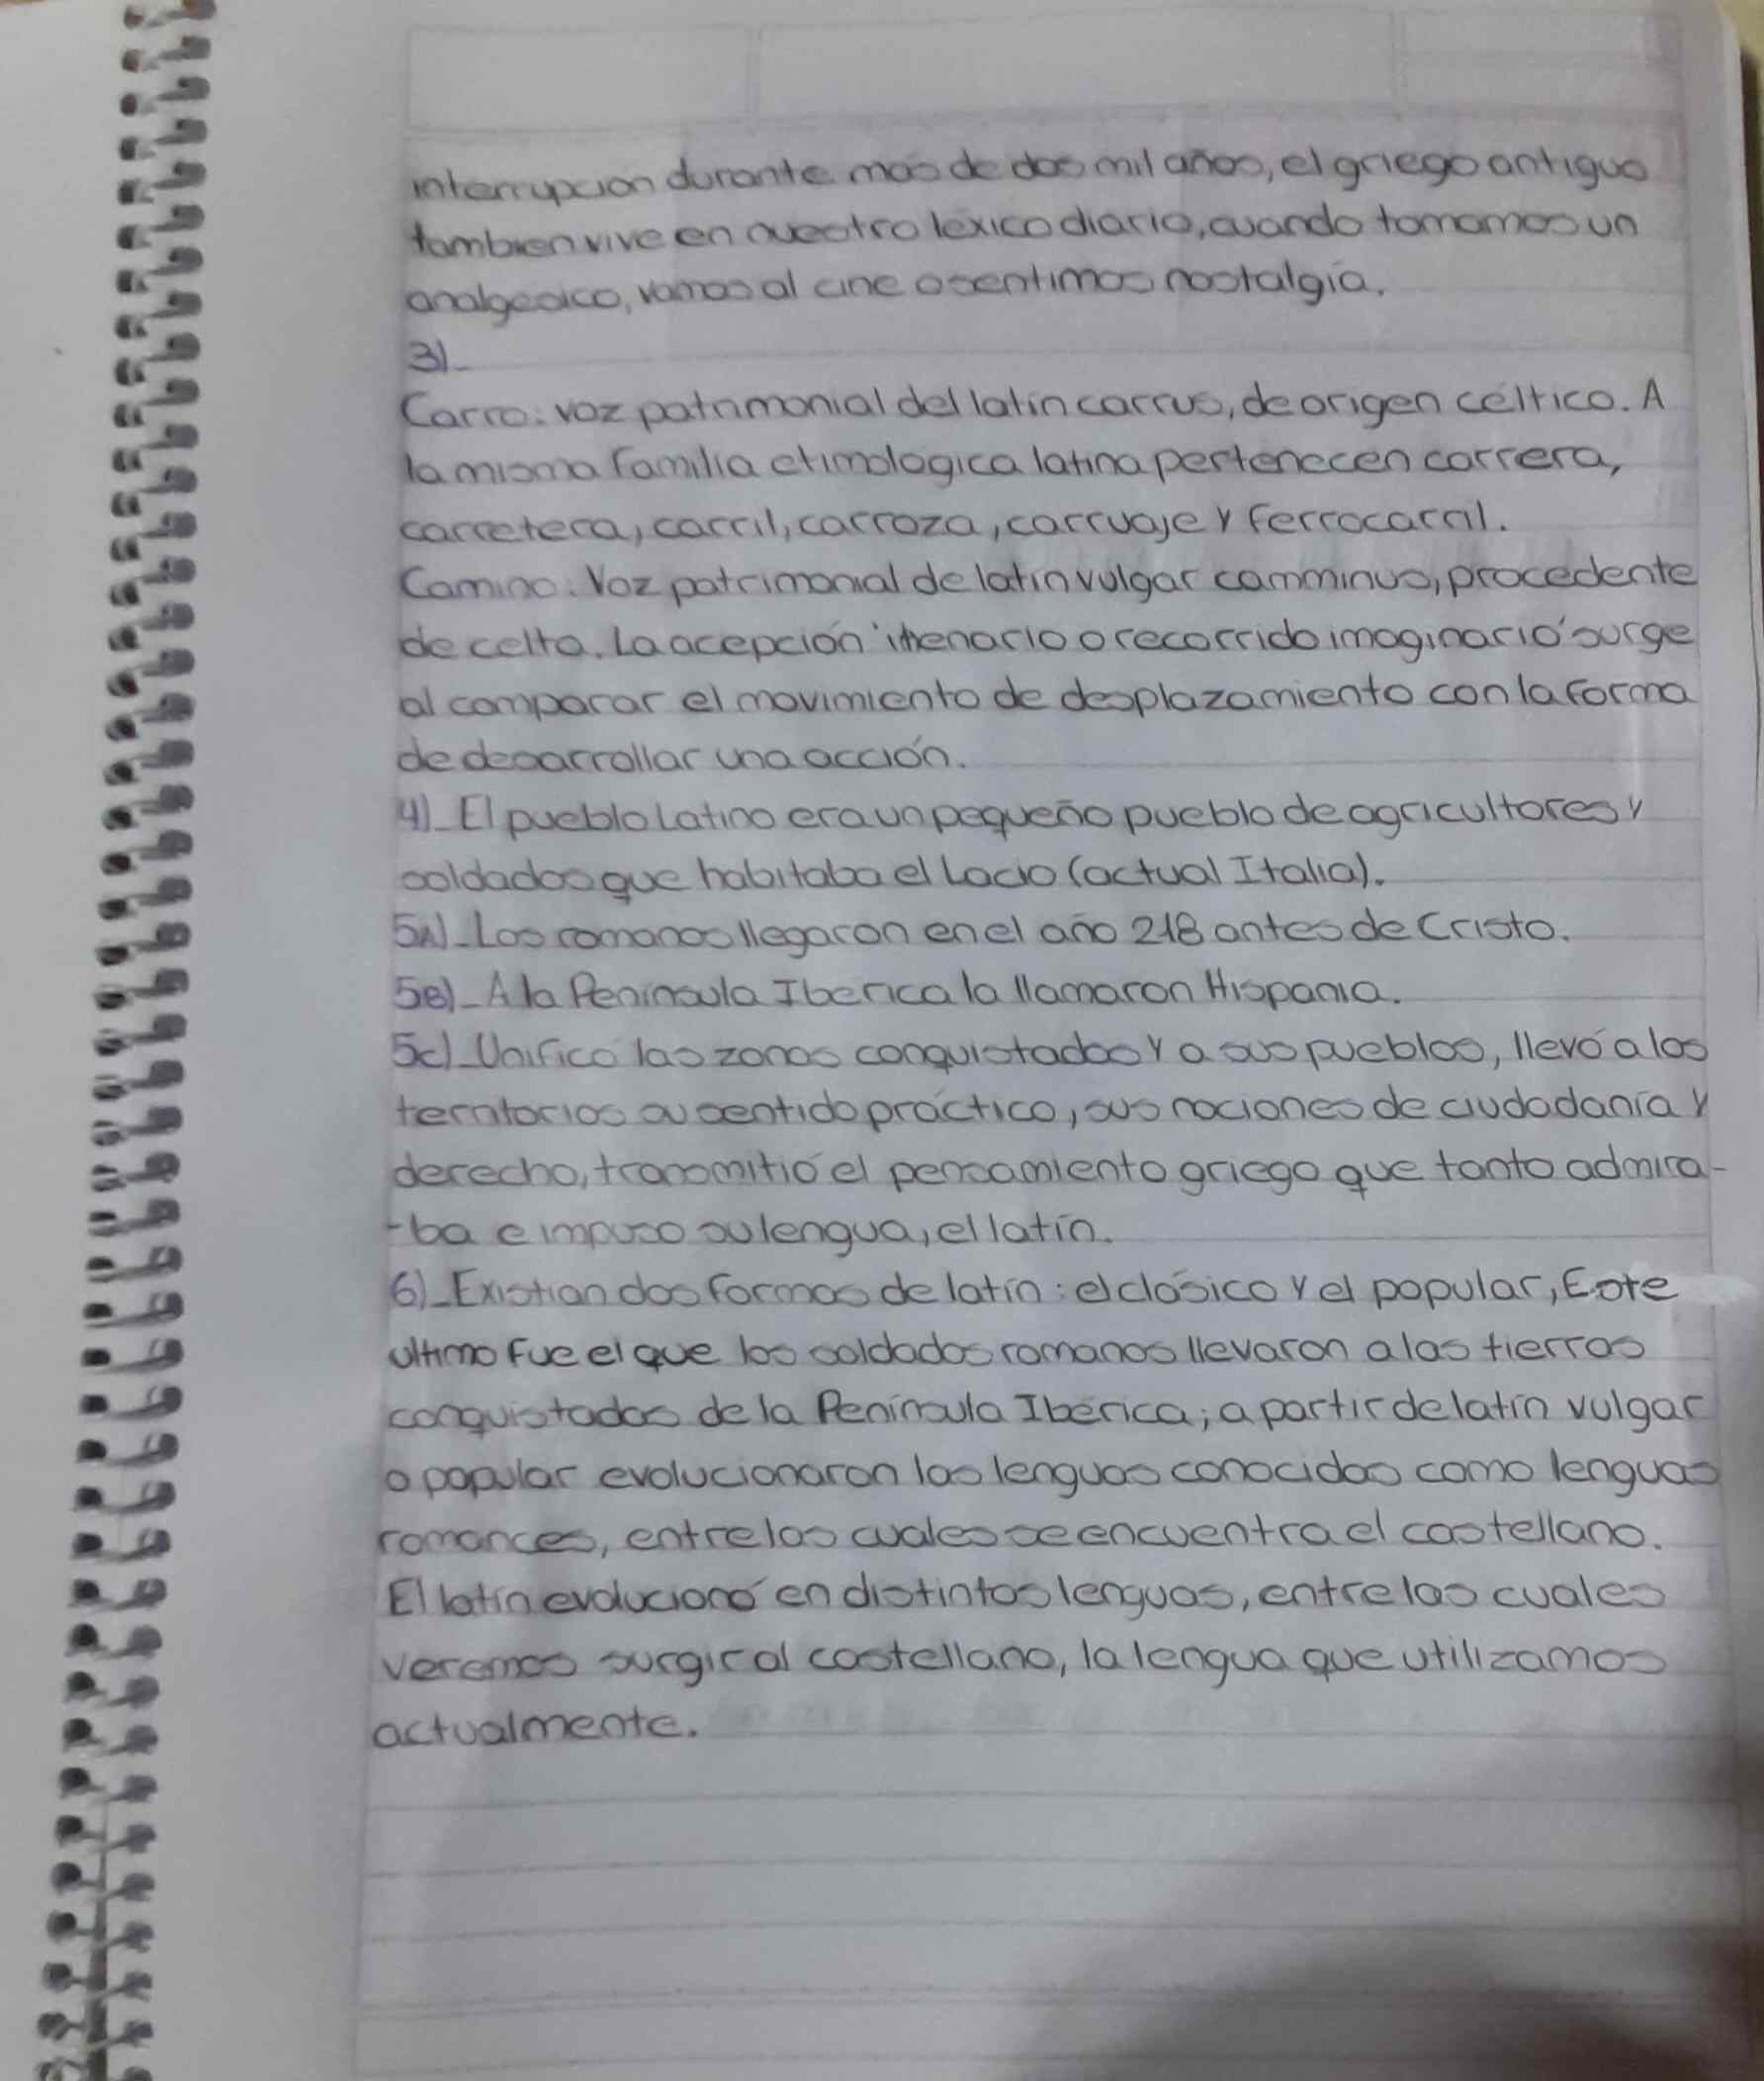 interrupcion durante más de dos mil años, el griego antiguo
tambien vive en nuestro léxico diario, cuando tomamos un
analgesico, vamos al cine o sentimos nostalgia.
3)_
Carro: voz patrimonial del latin carrus, de origen céltico. A
la misma familia etimologica latina pertenecen carrera,
carretera, carril, carroza, carruaje y ferrocarril.
Camino: Voz patrimonial de latin vulgar camminus, procedente
de celta. La acepción 'itenario o recorrido imaginario' surge
al comparar el movimiento de desplazamiento con la forma
de desarrollar una acción.
4)_ El pueblo Latino era un pequeño pueblo de agricultores y
soldados que habitaba el Lacio (actual Italia).
5A)_ Los romanos llegaron en el año 218 antes de Cristo.
5B)_ A la Península Iberica la llamaron Hispania.
5c)_ Unificó las zonas conquistadas y a sus pueblos, llevó a los
territorios su sentido práctico, sus nociones de ciudadanía y
derecho, transmitió el pensamiento griego que tanto admira-
-ba e impuso su lengua, el latín.
6)_ Existian dos formas de latín: el clásico y el popular, Este
ultimo fue el que los soldados romanos llevaron a las tierras
conquistadas de la Península Ibérica; a partir de latín vulgar
o popular evolucionaron las lenguas conocidas como lenguas
romances, entre las cuales se encuentra el castellano.
El latín evolucionó en distintas lenguas, entre las cuales
veremos surgir al castellano, la lengua que utilizamos
actualmente.